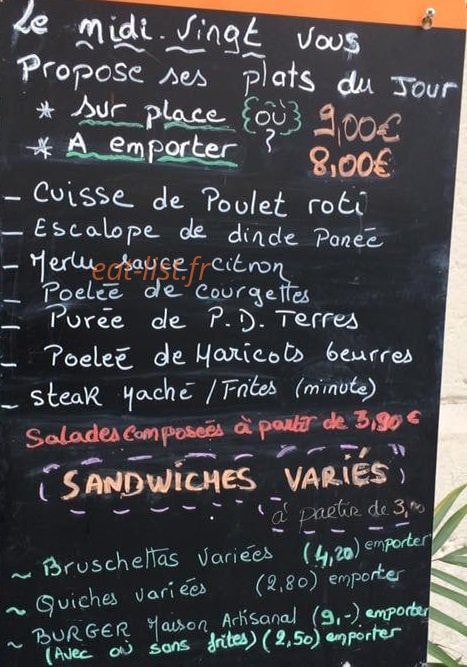 Le midi. Vingt vous
Propose ses plats du Jour
* sur place {où} 9,00€
* A emporter ? 8,00€
- Cuisse de Poulet roti
- Escalope de dinde Panée
- Merlu sauce citron
eat-list.fr
- Poeleé de courgettes
- Purée de P.D. Terres
- Poeleé de Haricots beurres
- steak haché / Frites (minute)
Salades Composées à partir de 3,90 €
( SANDWICHES VARIÉS )
à partir de 3,00
~ Bruschettas Variées (4,20) emporter
~ Quiches variées (2,80) emporter
~ BURGER Maison Artisanal (9,-) emporter
(Avec où sans frites) (2,50) emporter